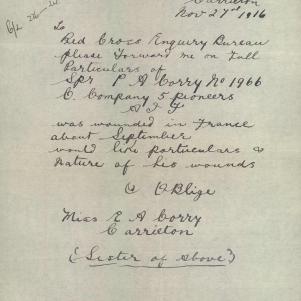 Carrieton
Nov 27th 1916
To
Red Cross Enquiry Bureau
please Forward me on Full
Particulars of
Spr P A Corry No 1966
C Company 5 Pioneers
A I F
was wounded in France
about September
would like particulars &
Nature of his wounds
& OBlige
Miss E A Corry
Carrieton
(Sister of above)